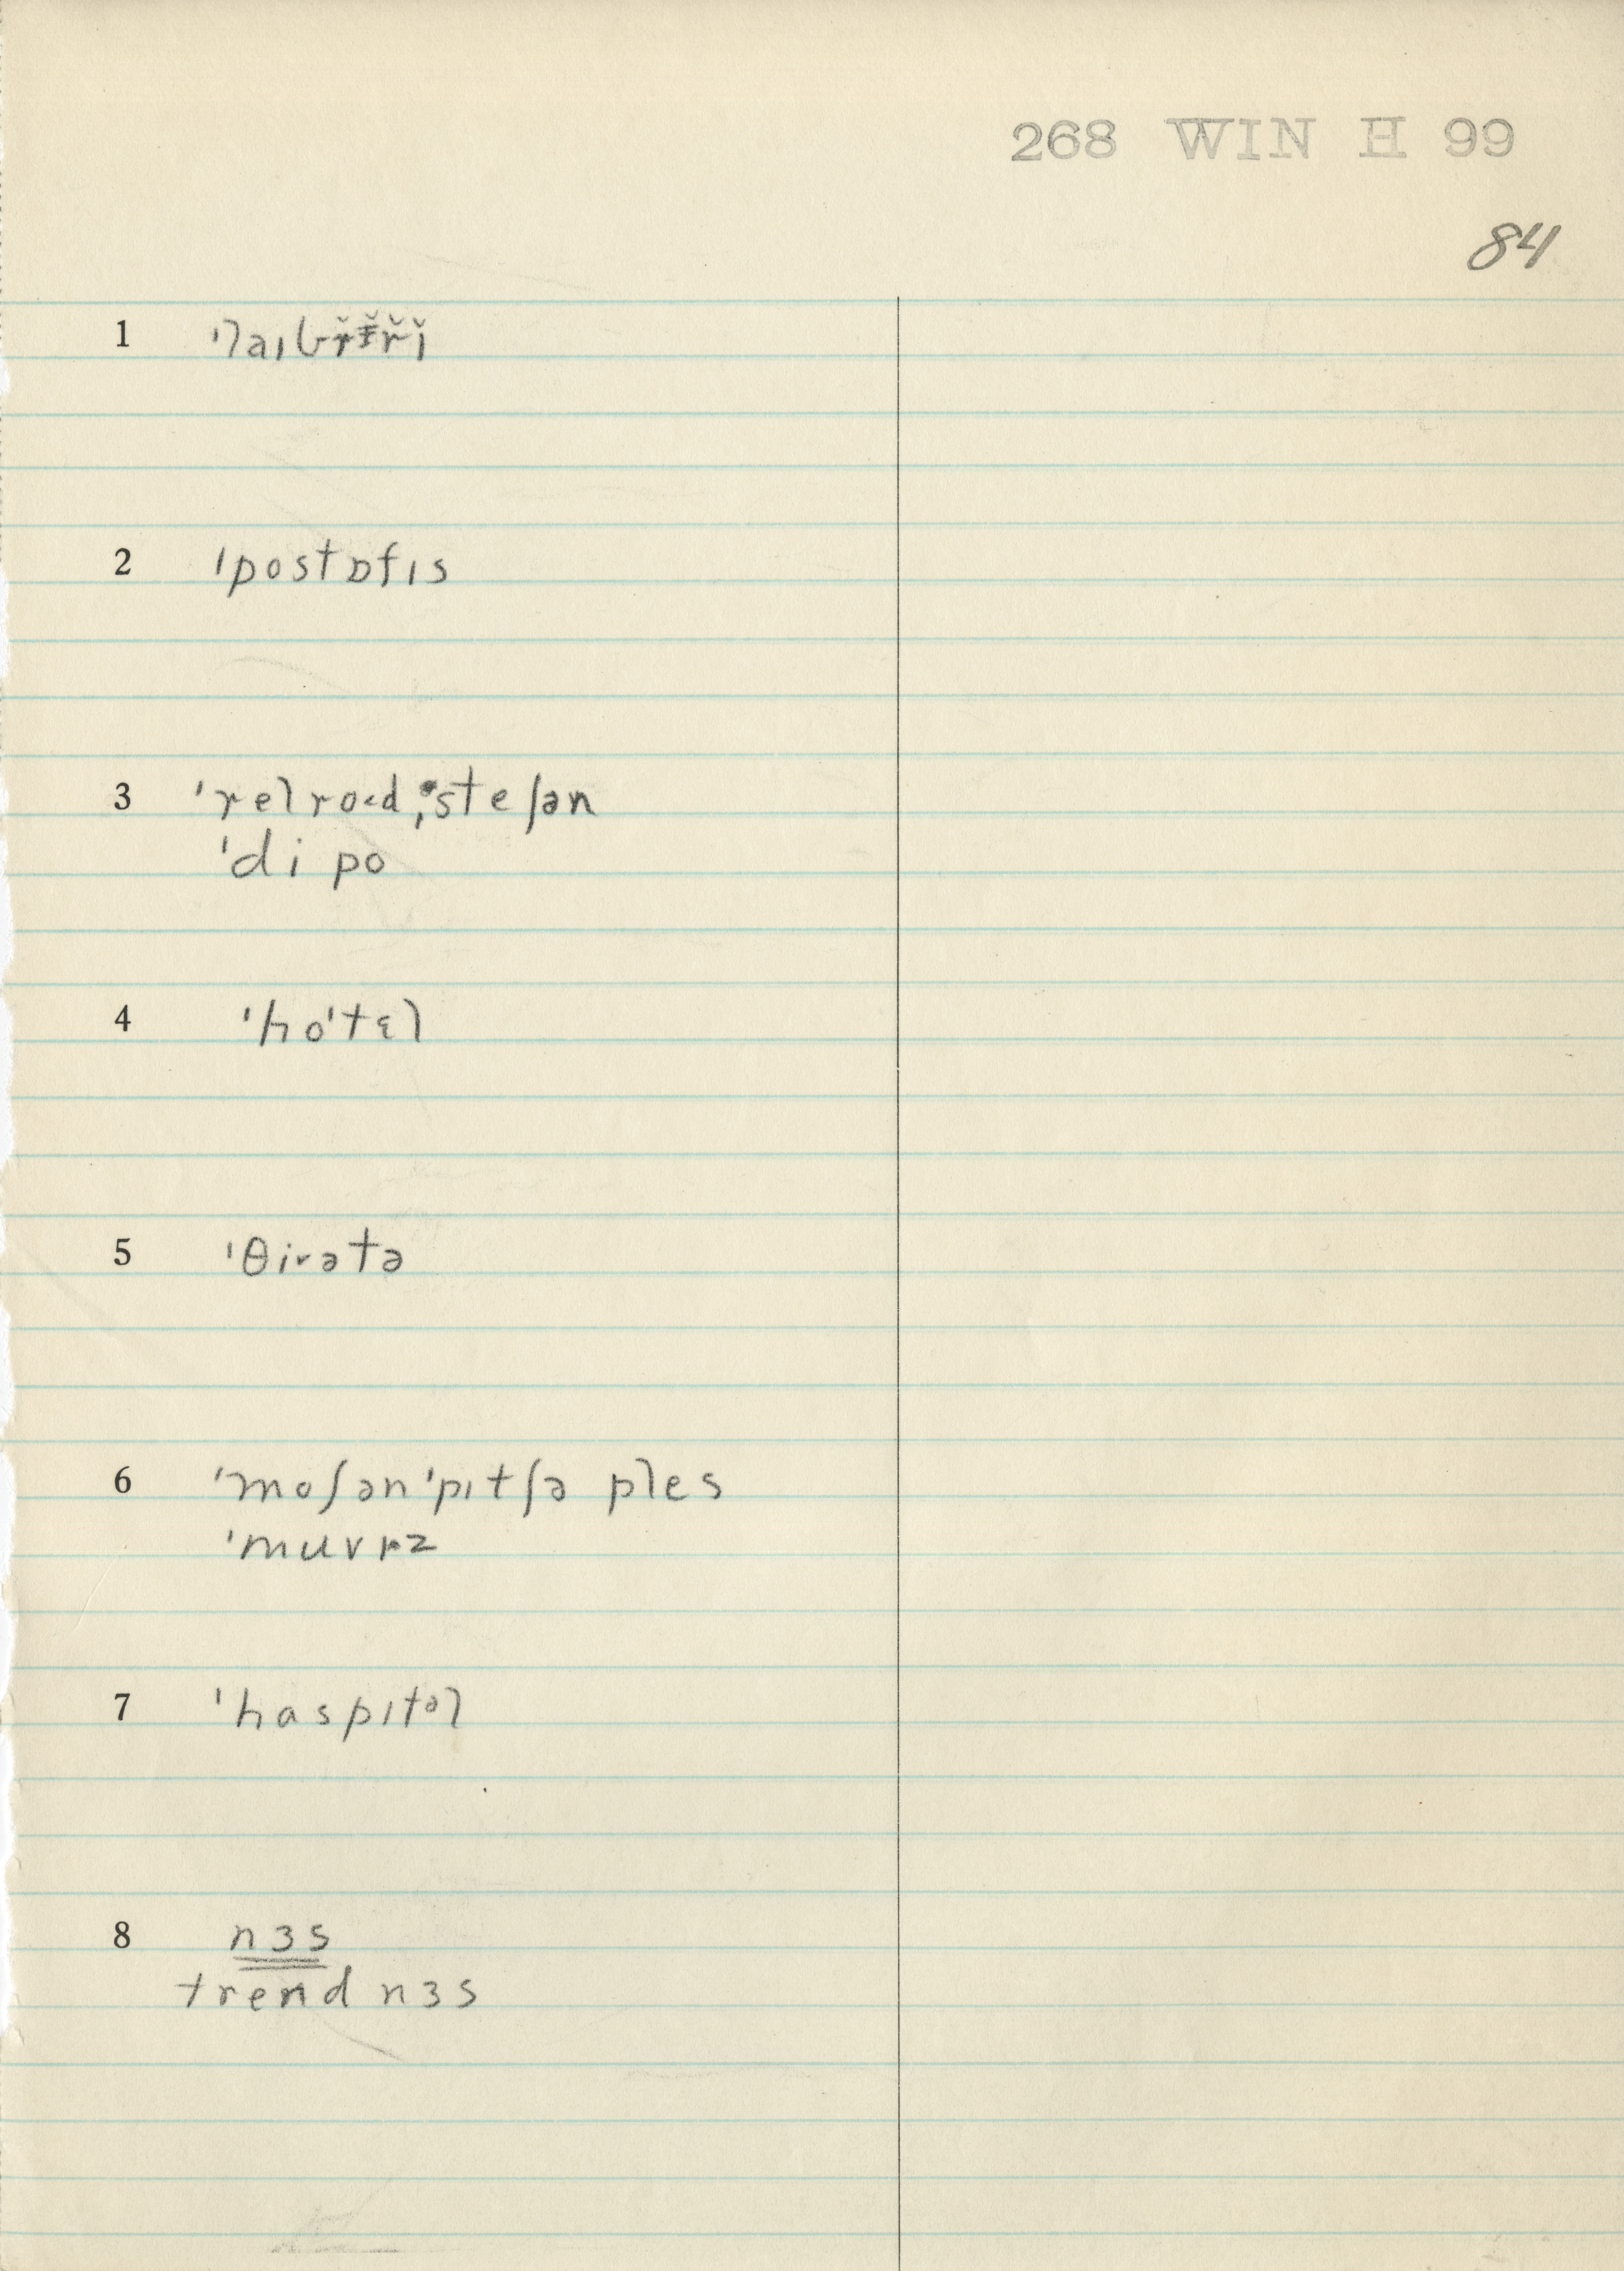 268 WIN H 99
84
1
2 ˈpostɒfɪs
3 ˈrelro<d ˌsteʃən
ˈdipo
4 ˈhoˈtɛl
5 ˈθirətə
6 ˈmoʃənˈpɪtʃə ples
ˈmuvɪz
7 ˈhaspɪtəl
8 nɜs
trend nɜs